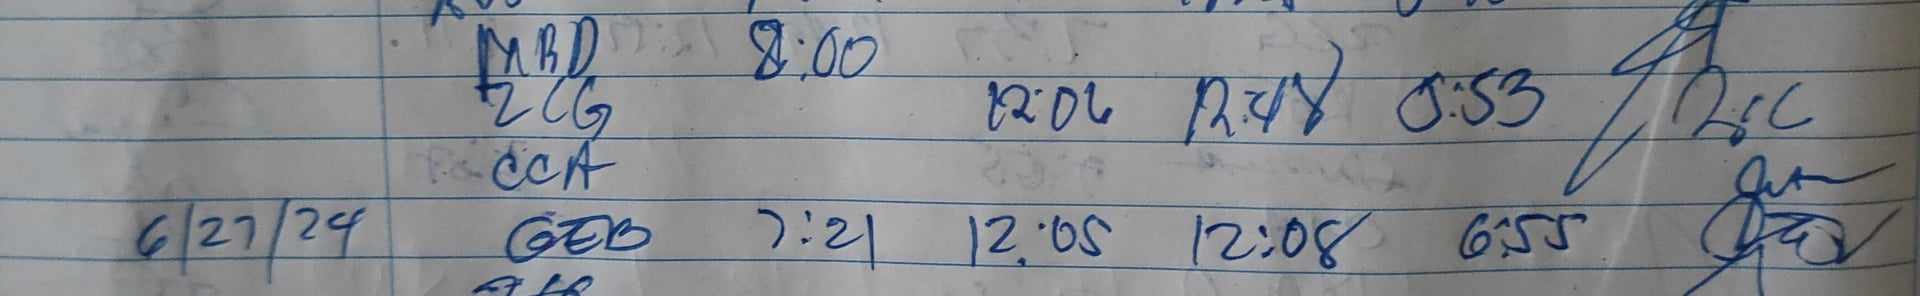 MBD 8:00
ZCG 12:06 12:48 5:53
CCA
6/27/24 GEB 7:21 12:05 12:08 6:55